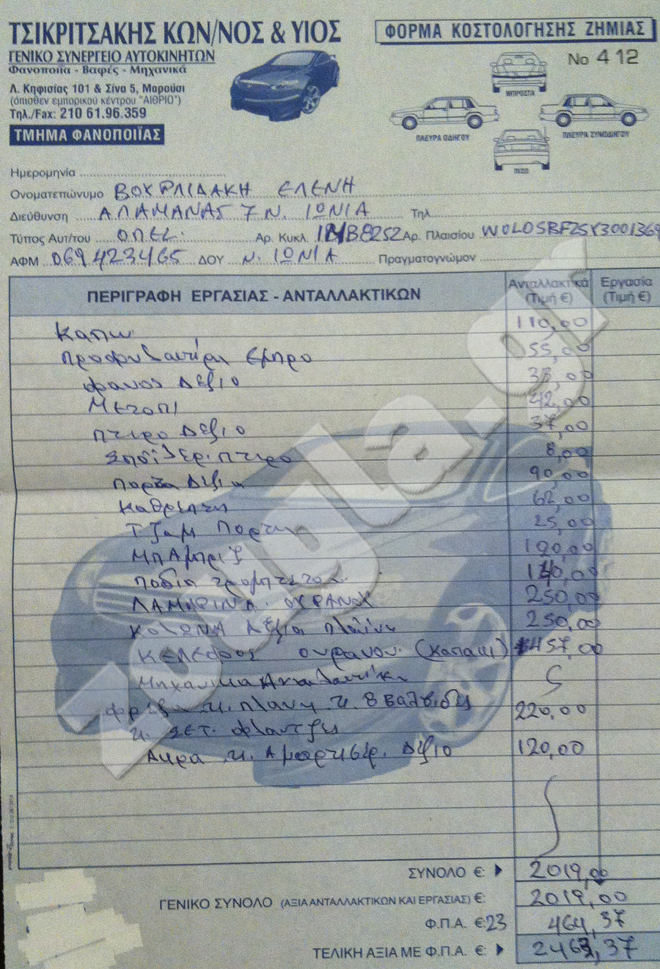 ΤΣΙΚΡΙΤΣΑΚΗΣ ΚΩΝ/ΝΟΣ & ΥΙΟΣ
ΓΕΝΙΚΟ ΣΥΝΕΡΓΕΙΟ ΑΥΤΟΚΙΝΗΤΩΝ
Φανοποιΐα - Βαφές - Μηχανικά
Λ. Κηφισίας 101 & Σίνα 5, Μαρούσι
(όπισθεν εμπορικού κέντρου "ΑΙΘΡΙΟ")
Τηλ./Fax: 210 61.96.359
ΤΜΗΜΑ ΦΑΝΟΠΟΙΪΑΣ
ΦΟΡΜΑ ΚΟΣΤΟΛΟΓΗΣΗΣ ΖΗΜΙΑΣ
Νο 412
ΜΠΡΟΣΤΑ
ΠΛΕΥΡΑ ΟΔΗΓΟΥ
ΠΛΕΥΡΑ ΣΥΝΟΔΗΓΟΥ
ΠΙΣΩ
Ημερομηνία
Ονοματεπώνυμο ΒΟΥΡΛΙΔΑΚΗ ΕΛΕΝΗ
Διεύθυνση ΑΛΑΜΑΝΑΣ 7 Ν. ΙΩΝΙΑ Τηλ
Τύπος Αυτ/του ΟΠΕΛ Αρ. Κυκλ. Αρ. Πλαισίου
ΑΦΜ 069423465 ΔΟΥ Ν. ΙΩΝΙΑ Πραγματογνώμον
ΠΕΡΙΓΡΑΦΗ ΕΡΓΑΣΙΑΣ - ΑΝΤΑΛΛΑΚΤΙΚΩΝ Ανταλλακτικά (Τιμή €) Εργασία (Τιμή €)
Καπω 110,00
Προφυλακτήρα Εμπρο 55,00
Φανος Δεξιο 38,00
Μετοπι 42,00
Πτερο Δεξιο 37,00
πτερο 8,00
Πορτα Δεξια 90,00
Καθρεπτη 62,00
Τζαμ Πορτ 25,00
Μπαμπριζ 120,00
Ποδια 140,00
ΛΑΜΑΡΙΝΑ ΟΥΡΑΝΟΥ 250,00
ΚΟΛΩΝΑ Δεξια 250,00
ουρανου 457,00
Μηχανικα
220,00
κ. ΣΕΤ. Φλαντζες
Ακρα κ. Αμορτισερ. Δεξιο 120,00
ΣΥΝΟΛΟ €: 2019,00
ΓΕΝΙΚΟ ΣΥΝΟΛΟ (ΑΞΙΑ ΑΝΤΑΛΛΑΚΤΙΚΩΝ ΚΑΙ ΕΡΓΑΣΙΑΣ) €: 2019,00
Φ.Π.Α. €: 23 464,37
ΤΕΛΙΚΗ ΑΞΙΑ ΜΕ Φ.Π.Α. €: 2463,37
zougla.gr